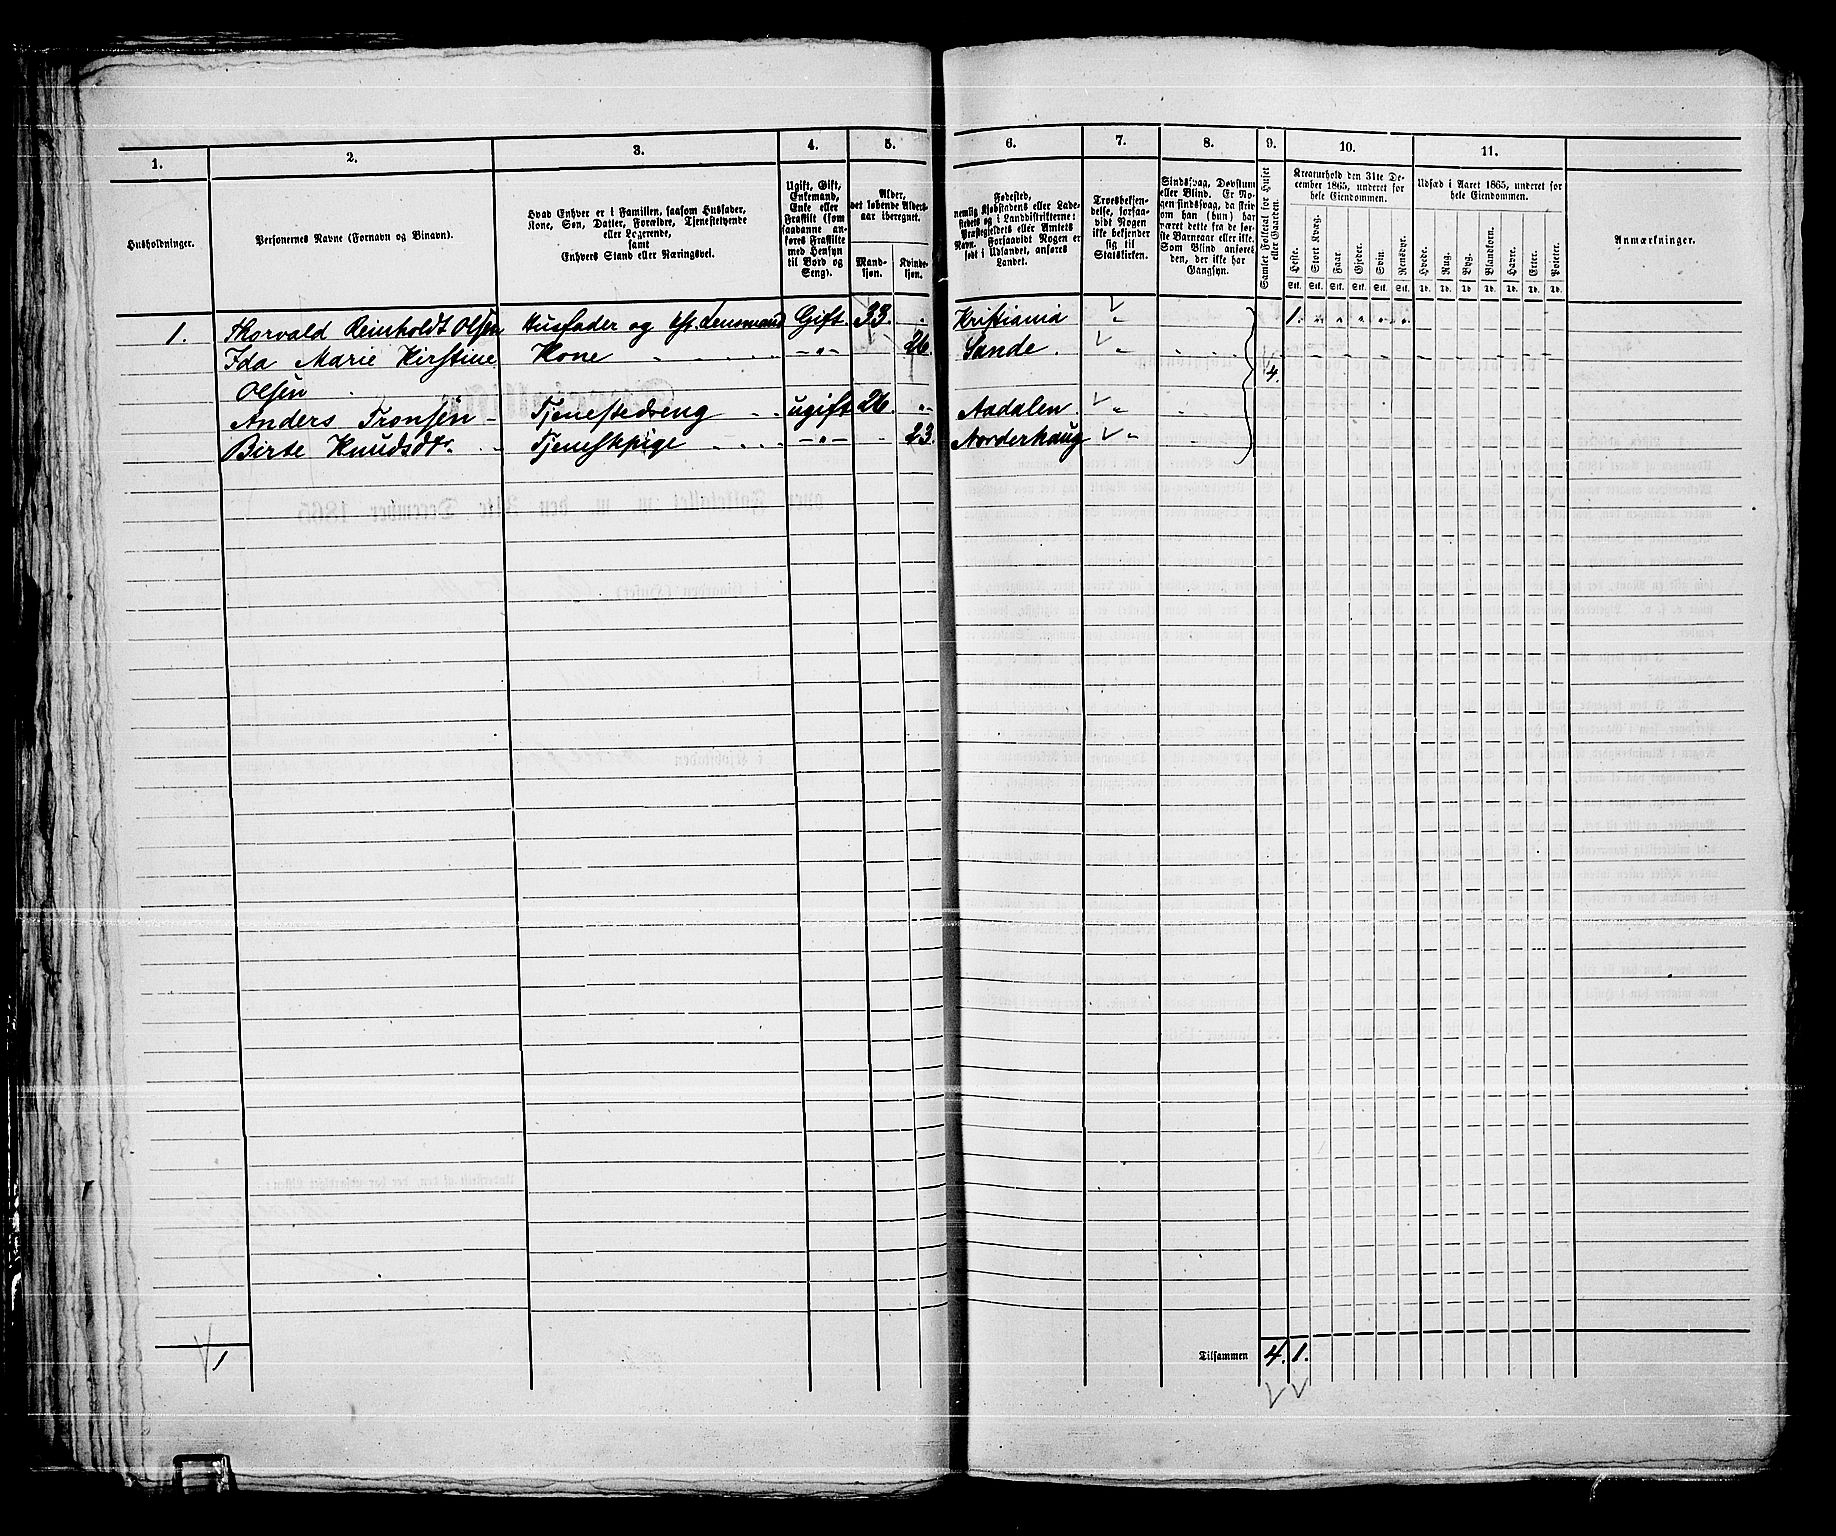 1. 2. 3. 4. 5. 6. 7. 8. 9. 10. 11.
Husholdninger.
Personernes Navne (Fornavn og Binavn).
Hvad Enhver er i Familien, saasom Husfader,
Kone, Søn, Datter, Forældre, Tjenestetyende
eller Logerende,
samt
Enhvers Stand eller Næringsvei.
Ugift, Gift,
Enkemand,
Enke eller
Fraskilt (som
saadanne an-
føres Fraskilte
med Hensyn
til Bord og
Seng).
Alder,
det løbende Alders-
aar iberegnet.
Mand-
kjøn.
Kvinde-
kjøn.
Fødested,
nemlig Kjøbstadens eller Lade-
stedets og i Landdistrikterne:
Præstegjeldets eller Amtets
Navn. Forsaavidt Nogen er
født i Udlandet, anføres
Landet.
Troesbekjen-
delse, forsaa-
vidt Nogen
ikke bekjender
sig til
Statskirken.
Sindssvag, Døvstum
eller Blind. Er No-
gen sindssvag, da skriv
om han (hun) har
været dette fra de før-
ste Barneaar eller ikke.
Som Blind anføres
den, der ikke har
Gangsyn.
Samlet Folketal for Huset
eller Gaarden.
Kreaturhold den 31te De-
cember 1865, underet for
hele Eiendommen.
Heste. Stort Kvæg. Faar. Gjeder. Svin. Rensdyr.
Stk. Stk. Stk. Stk. Stk. Stk.
Udsæd i Aaret 1865, underet for
hele Eiendommen.
Hvede. Rug. Byg. Blandkorn. Havre. Erter. Poteter.
Td. Td. Td. Td. Td. Td. Td.
Anmærkninger.
1. Thorvald Reinholdt Olsen Husfader og Lensmand Gift. 33. " Kristiania " 1. " " " " "
Ida Marie Kirstine Kone - " - 26. Sande. " 4.
Olsen
Anders Tronsen - Tjenestedreng ugift 26. " Aadalen. "
Birte Knudsdtr. Tjenestpige - " - 23. Norderhaug "
1
Tilsammen 4. 1.